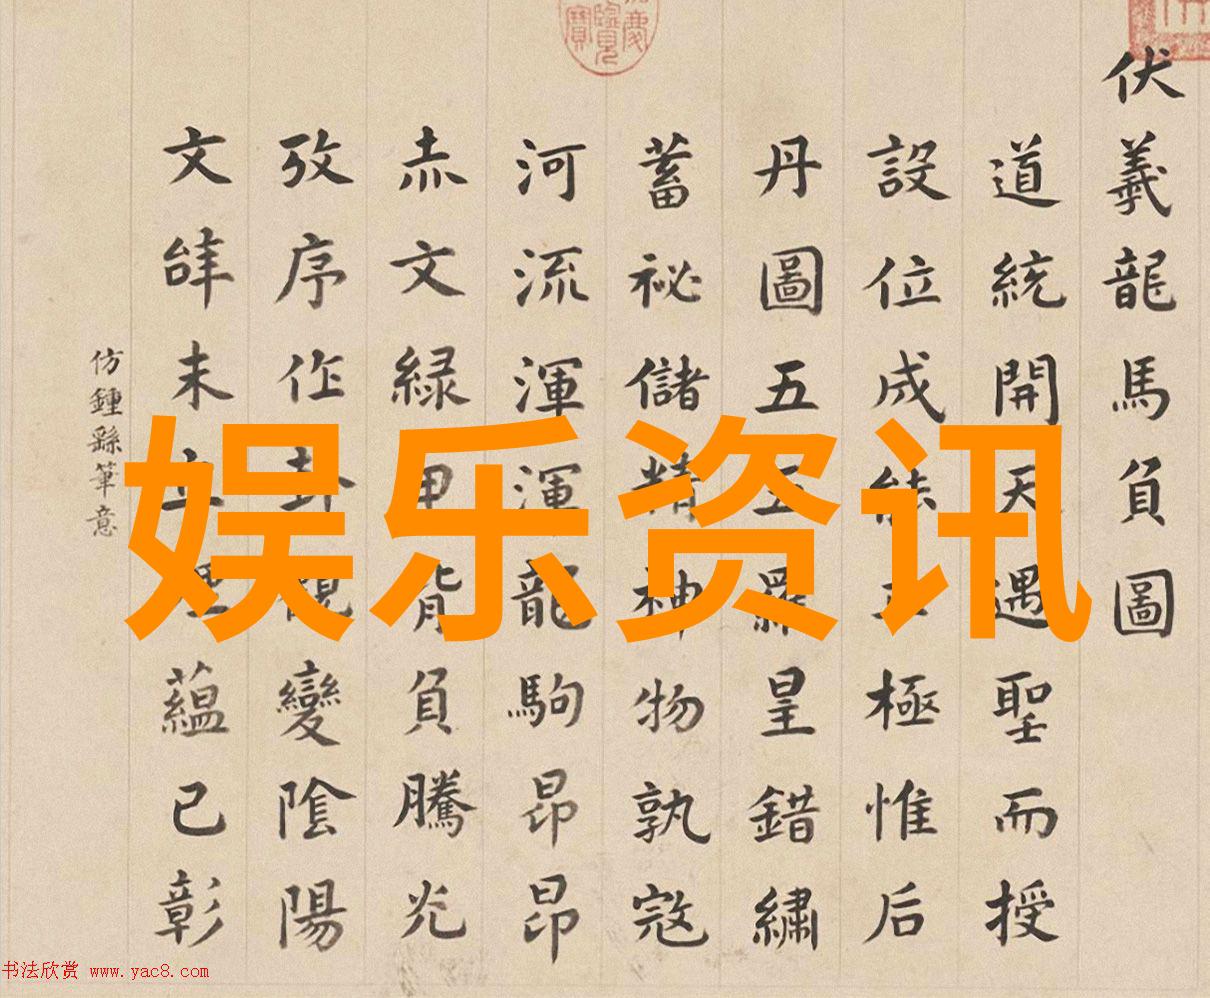 伏羲龍馬負圖
道統開天遇聖而授
設位成能極惟后
丹圖五五羅皇錯繡
蓄祕儲精神物孰寇
河流渾渾龍駒昂昂
赤文緑甲背負騰光
攷序作卦觀變陰陽
文辝未立理蘊已彰
仿鍾繇筆意
娱乐资讯
书法欣赏 www.yac8.com